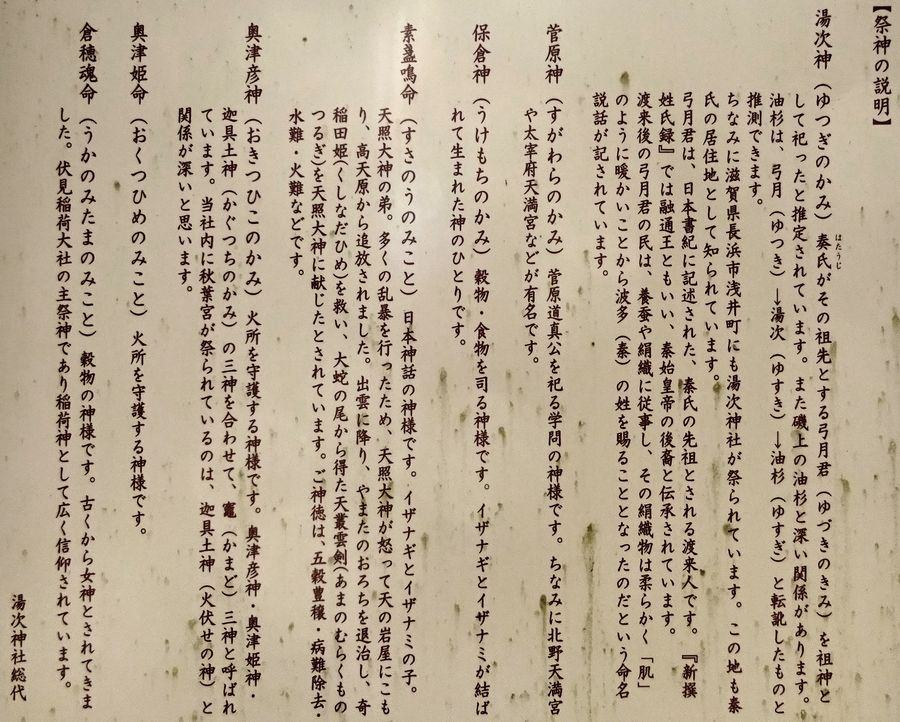 【祭神の説明】
湯次神（ゆつぎのかみ）秦氏がその祖先とする弓月君（ゆづきのきみ）を祖神と
はたうじ
して祀ったと推定されています。また磯上の油杉と深い関係があります。
油杉は、弓月（ゆつき）→湯次（ゆすき）→油杉（ゆすぎ）と転訛したものと
推測できます。
ちなみに滋賀県長浜市浅井町にも湯次神社が祭られています。この地も秦
氏の居住地として知られています。
弓月君は、日本書紀に記述された、秦氏の先祖とされる渡来人です。『新撰
姓氏録』では融通王ともいい、秦始皇帝の後裔と伝承されています。
渡来後の弓月君の民は、養蚕や絹織に従事し、その絹織物は柔らかく「肌」
のように暖かいことから波多（秦）の姓を賜ることとなったのだという命名
説話が記されています。
菅原神（すがわらのかみ）菅原道真公を祀る学問の神様です。ちなみに北野天満宮
や太宰府天満宮などが有名です。
保倉神（うけもちのかみ）穀物・食物を司る神様です。イザナギとイザナミが結ば
れて生まれた神のひとりです。
素盞鳴命（すさのうのみこと）日本神話の神様です。イザナギとイザナミの子。
天照大神の弟。多くの乱暴を行ったため、天照大神が怒って天の岩屋にこも
り、高天原から追放されました。出雲に降り、やまたのおろちを退治し、奇
稲田姫（くしなだひめ）を救い、大蛇の尾から得た天叢雲剣（あまのむらくもの
つるぎ）を天照大神に献じたとされています。ご神徳は、五穀豊穣・病難除去・
水難・火難などです。
奥津彦神（おきつひこのかみ）火所を守護する神様です。奥津彦神・奥津姫神・
迦具土神（かぐつちのかみ）の三神を合わせて、竈（かまど）三神と呼ばれ
ています。当社内に秋葉宮が祭られているのは、迦具土神（火伏せの神）と
関係が深いと思います。
奥津姫命（おくつひめのみこと）火所を守護する神様です。
倉穂魂命（うかのみたまのみこと）穀物の神様です。古くから女神とされてきま
した。伏見稲荷大社の主祭神であり稲荷神として広く信仰されています。
湯次神社総代